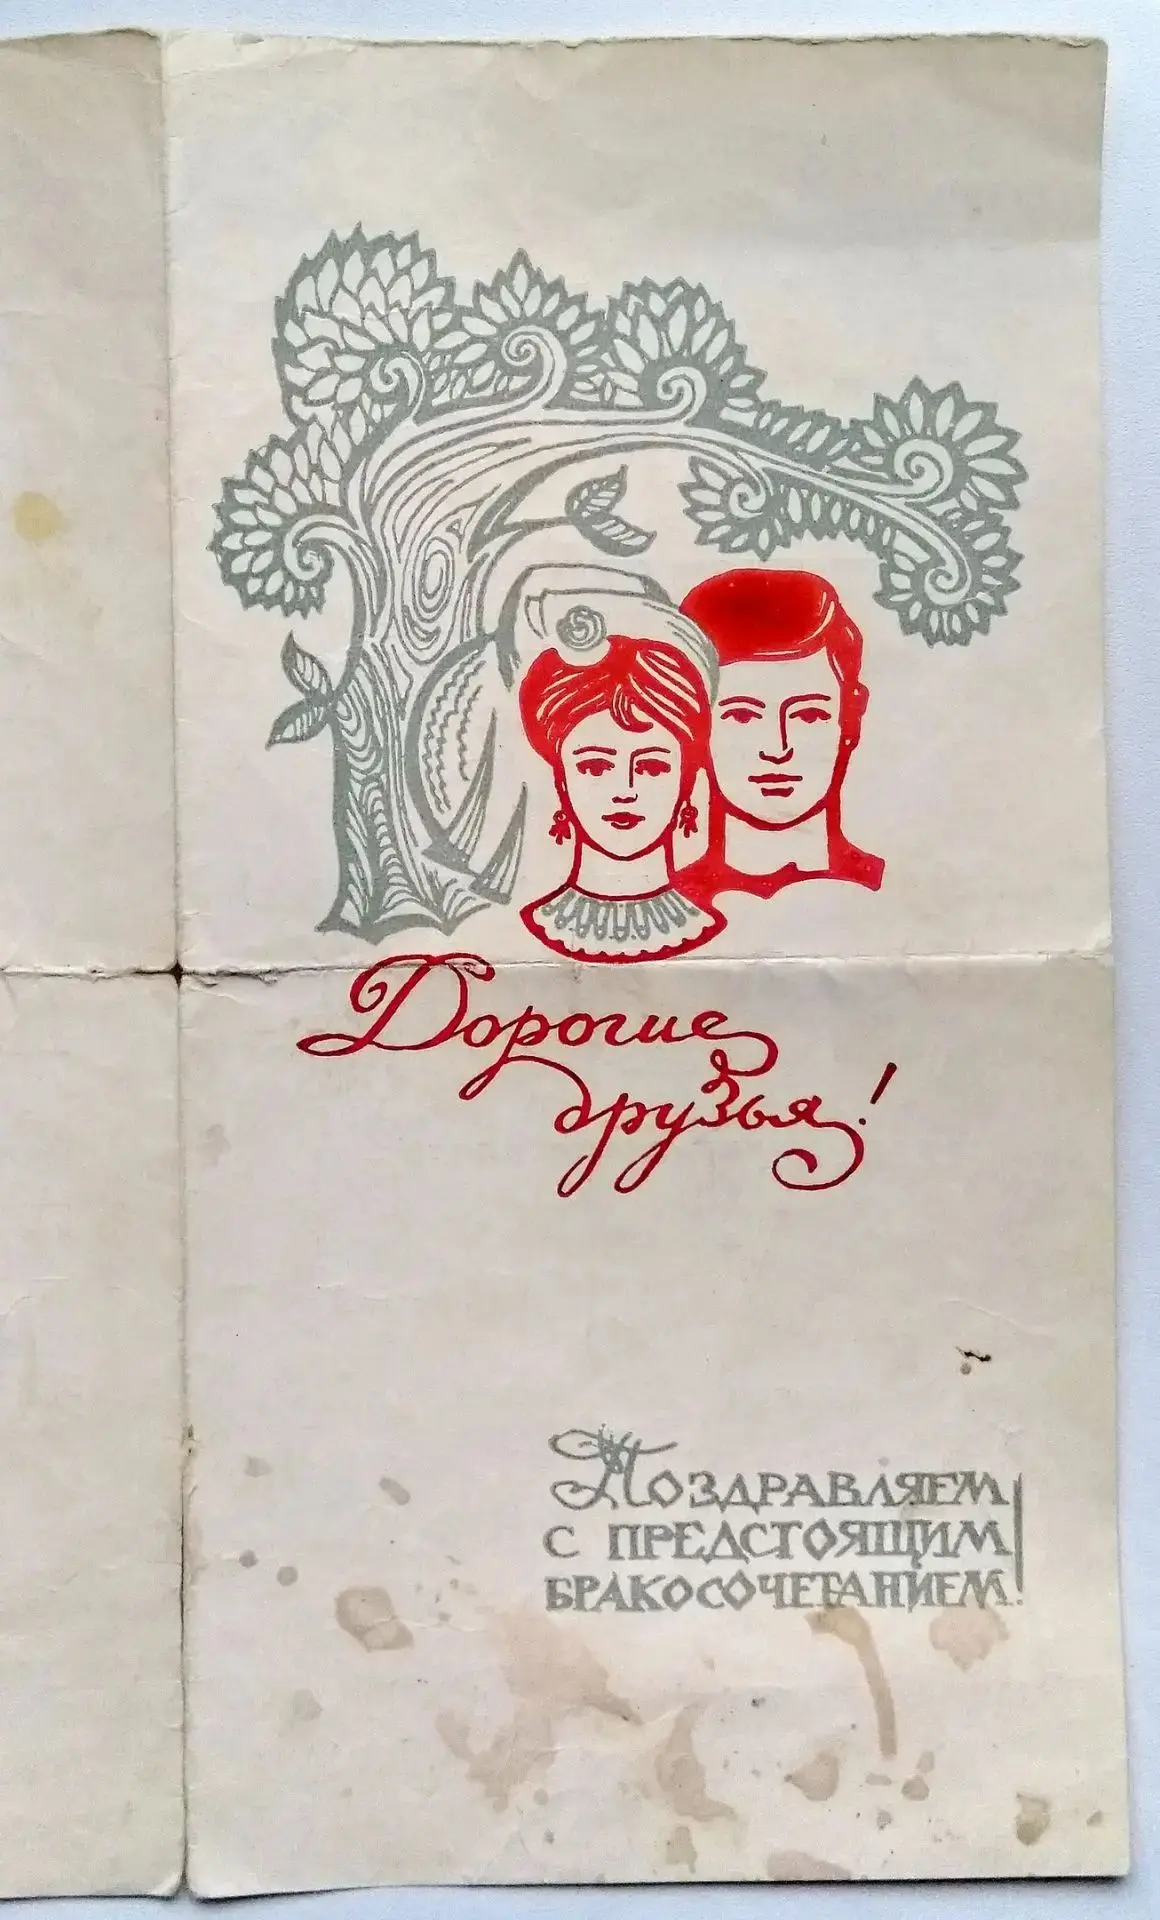 Дорогие
друзья!
Поздравляем
с предстоящим
бракосочетанием!